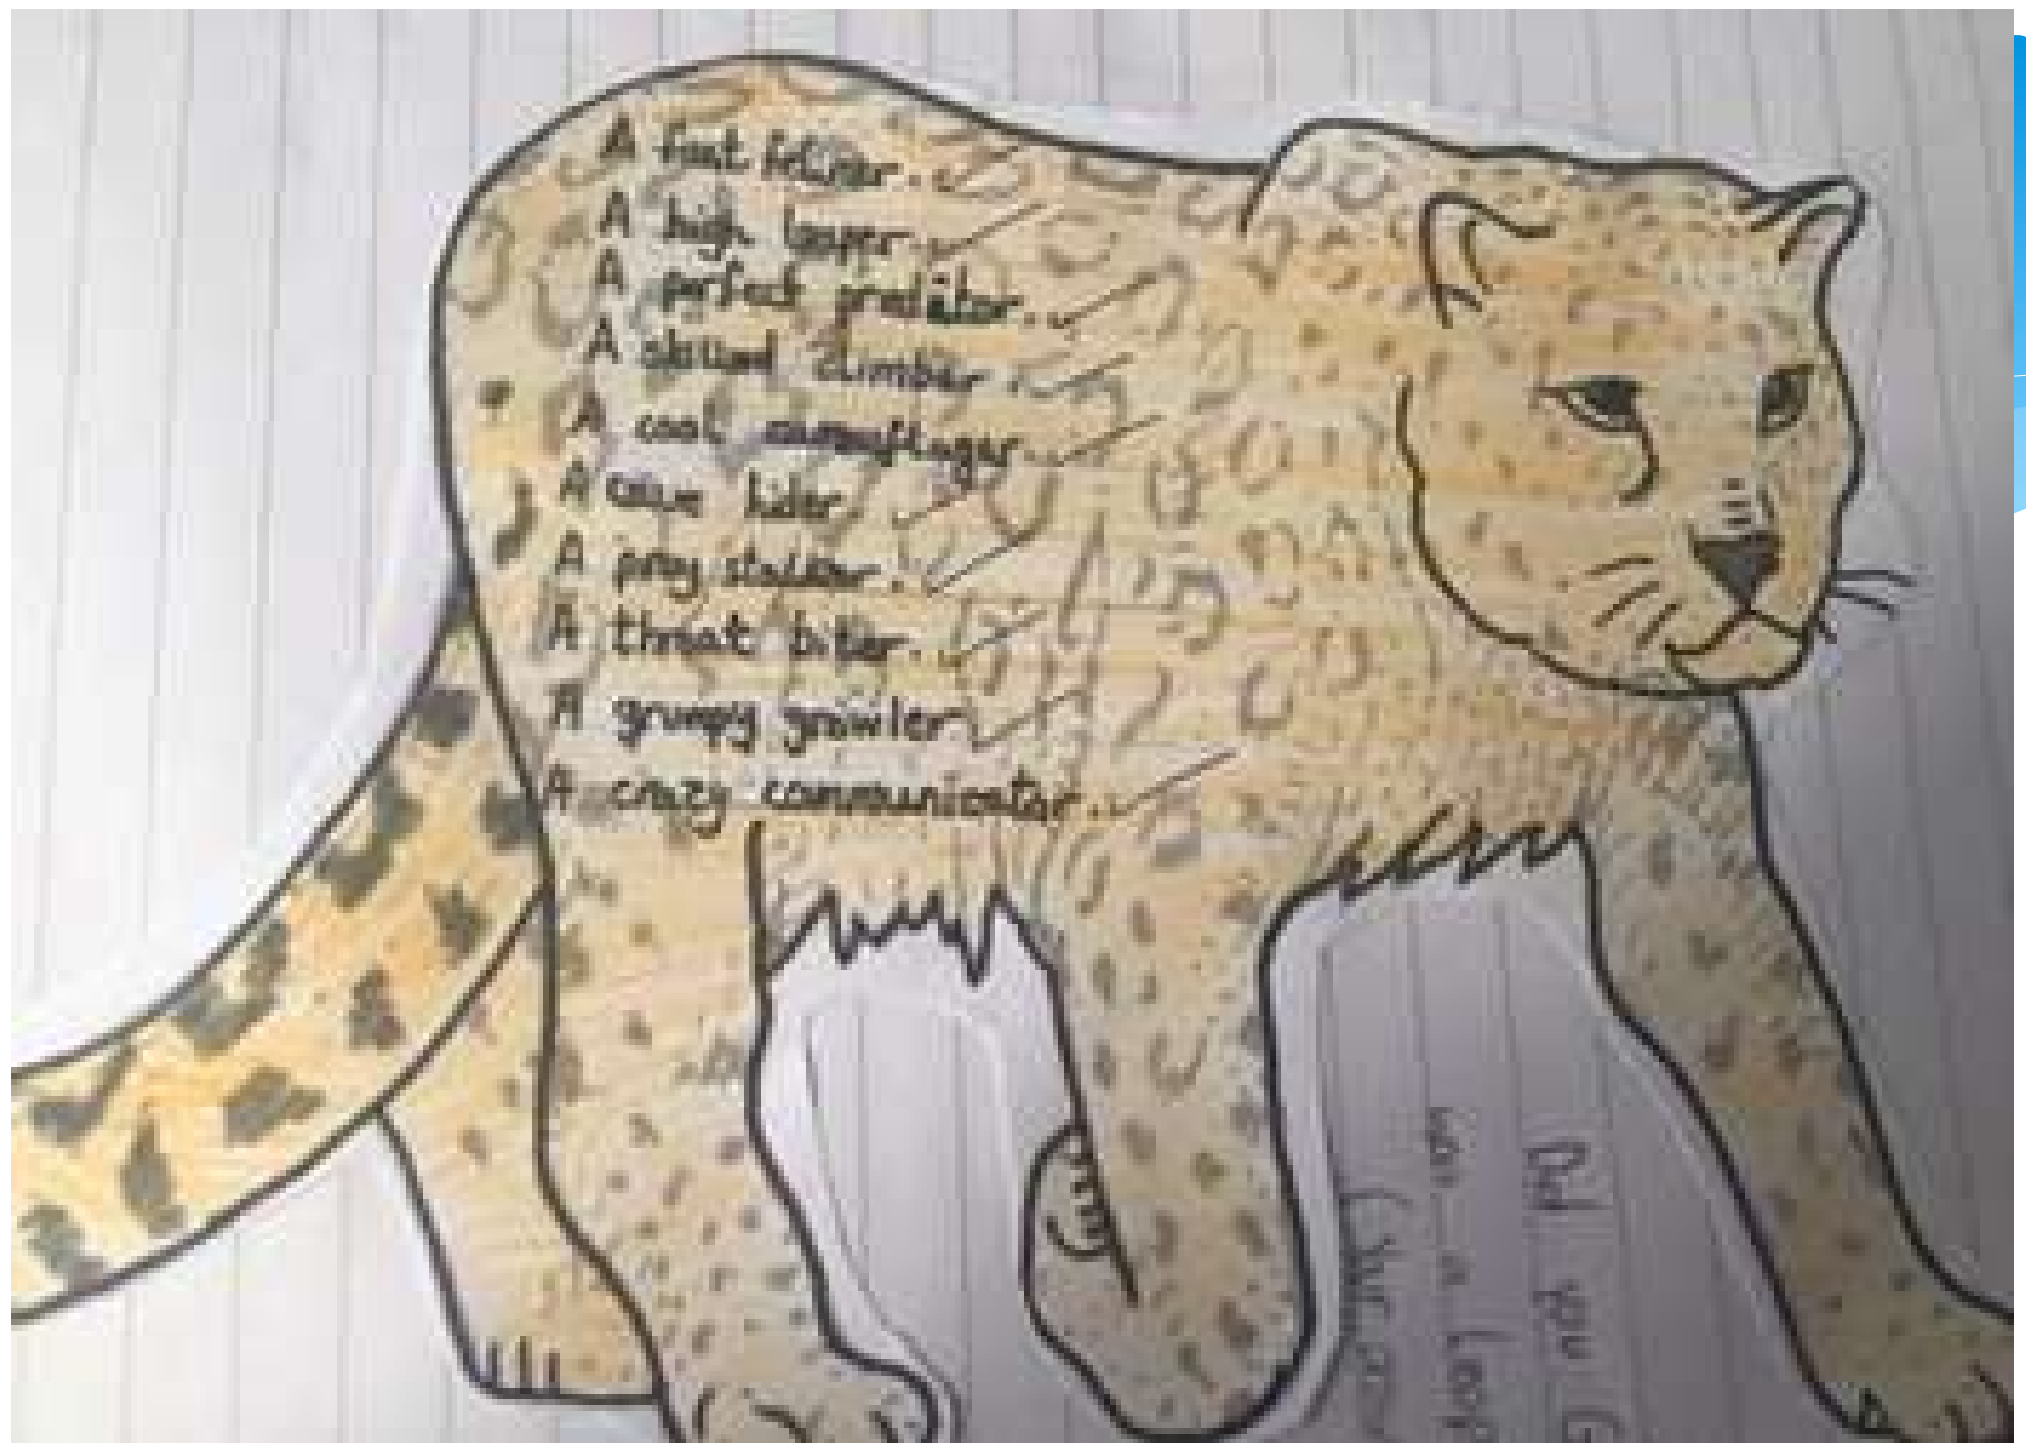 A fast feliner.
A high leaper.
A perfect predator.
A skilled climber.
A cool camouflager.
A cave hider.
A prey stalker.
A throat biter.
A grumpy growler.
A crazy communicator.
Did you G
was a Leop